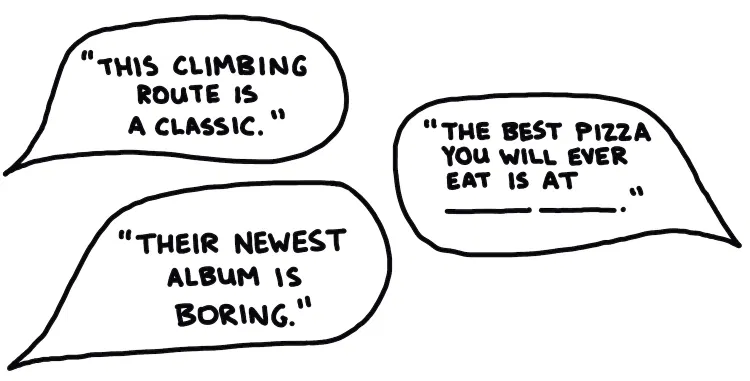 "THIS CLIMBING
ROUTE IS
A CLASSIC."
"THE BEST PIZZA
YOU WILL EVER
EAT IS AT
_____ _____."
"THEIR NEWEST
ALBUM IS
BORING."